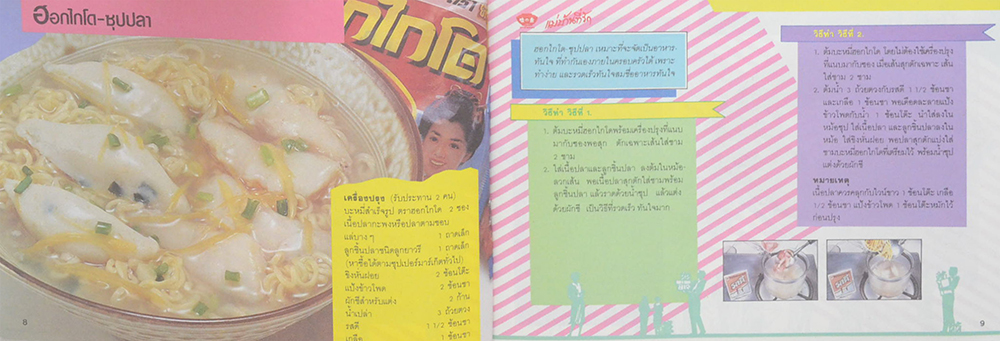 ฮอกไกโด-ซุปปลา
ไกโด
เครื่องปรุง (รับประทาน 2 คน)
บะหมี่สำเร็จรูป ตราฮอกไกโด 2 ซอง
เนื้อปลากะพงหรือปลาตามชอบ
แล่บาง ๆ 1 ถาดเล็ก
ลูกชิ้นปลาชนิดลูกยาวรี 1 ถาดเล็ก
(หาซื้อได้ตามซุปเปอร์มาร์เก็ตทั่วไป)
ขิงหั่นฝอย 2 ช้อนโต๊ะ
แป้งข้าวโพด 2 ช้อนชา
ผักชีสำหรับแต่ง 2 ก้าน
น้ำเปล่า 3 ถ้วยตวง
รสดี 1 1/2 ช้อนชา
เกลือ 1 ช้อนชา
8
แม่บ้านที่รัก
ฮอกไกโด-ซุปปลา เหมาะที่จะจัดเป็นอาหาร-
ทันใจ ที่ทำกันเองภายในครอบครัวได้ เพราะ
ทำง่าย และรวดเร็วทันใจสมชื่ออาหารทันใจ
วิธีทำ วิธีที่ 1.
1. ต้มบะหมี่ฮอกไกโดพร้อมเครื่องปรุงที่แนบ
มากับซองพอสุก ตักเฉพาะเส้นใส่ชาม
2 ชาม
2. ใส่เนื้อปลาและลูกชิ้นปลา ลงต้มในหม้อ
ลวกเส้น พอเนื้อปลาสุกตักใส่ชามพร้อม
ลูกชิ้นปลา แล้วราดด้วยน้ำซุป แล้วแต่ง
ด้วยผักชี เป็นวิธีที่รวดเร็ว ทันใจมาก
วิธีทำ วิธีที่ 2.
1. ต้มบะหมี่ฮอกไกโด โดยไม่ต้องใช้เครื่องปรุง
ที่แนบมากับซอง เมื่อเส้นสุกตักเฉพาะ เส้น
ใส่ชาม 2 ชาม
2. ต้มน้ำ 3 ถ้วยตวงกับรสดี 1 1/2 ช้อนชา
และเกลือ 1 ช้อนชา พอเดือดละลายแป้ง
ข้าวโพดกับน้ำ 1 ช้อนโต๊ะ นำใส่ลงใน
หม้อซุป ใส่เนื้อปลา และลูกชิ้นปลาลงใน
หม้อ ใส่ขิงหั่นฝอย พอปลาสุกตักแบ่งใส่
ชามบะหมี่ฮอกไกโดที่เตรียมไว้ พร้อมน้ำซุป
แต่งด้วยผักชี
หมายเหตุ
เนื้อปลาควรคลุกกับไวน์ขาว 1 ช้อนโต๊ะ เกลือ
1/2 ช้อนชา แป้งข้าวโพด 1 ช้อนโต๊ะหมักไว้
ก่อนปรุง
9